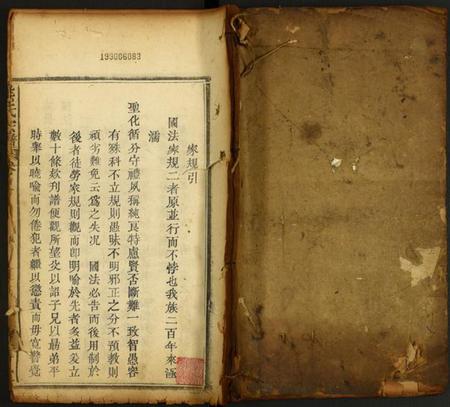 199006083
家規引
國法家規二者原並行而不悖也我族二百年來涵
濡
聖化循分守禮夙稱純良特慮賢否斷難一致智愚容
有殊科不立規則愚昧不明邪正之分不預教則
頑劣難免云為之失况 國法必告而後用制於
後者徒勞家規則觀而即明喻於先者多益爰立
數十條刻譜便觀所望父以詔子兄以勗弟平
時率以曉喻而勿倦犯者繩以懲責而毋寬
氏宗譜